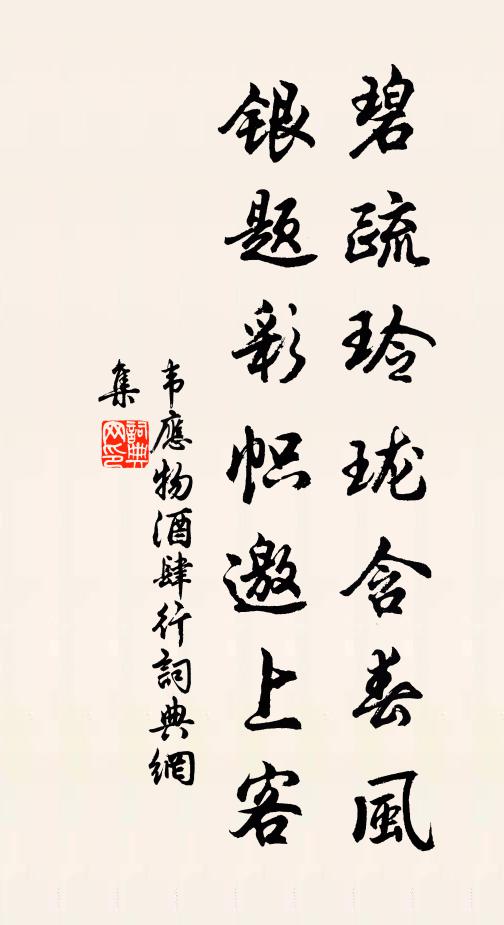 碧疏玲珑含春風
银题彩帜邀上客
韦應物酒肆行詞典網
集
詞典
网印